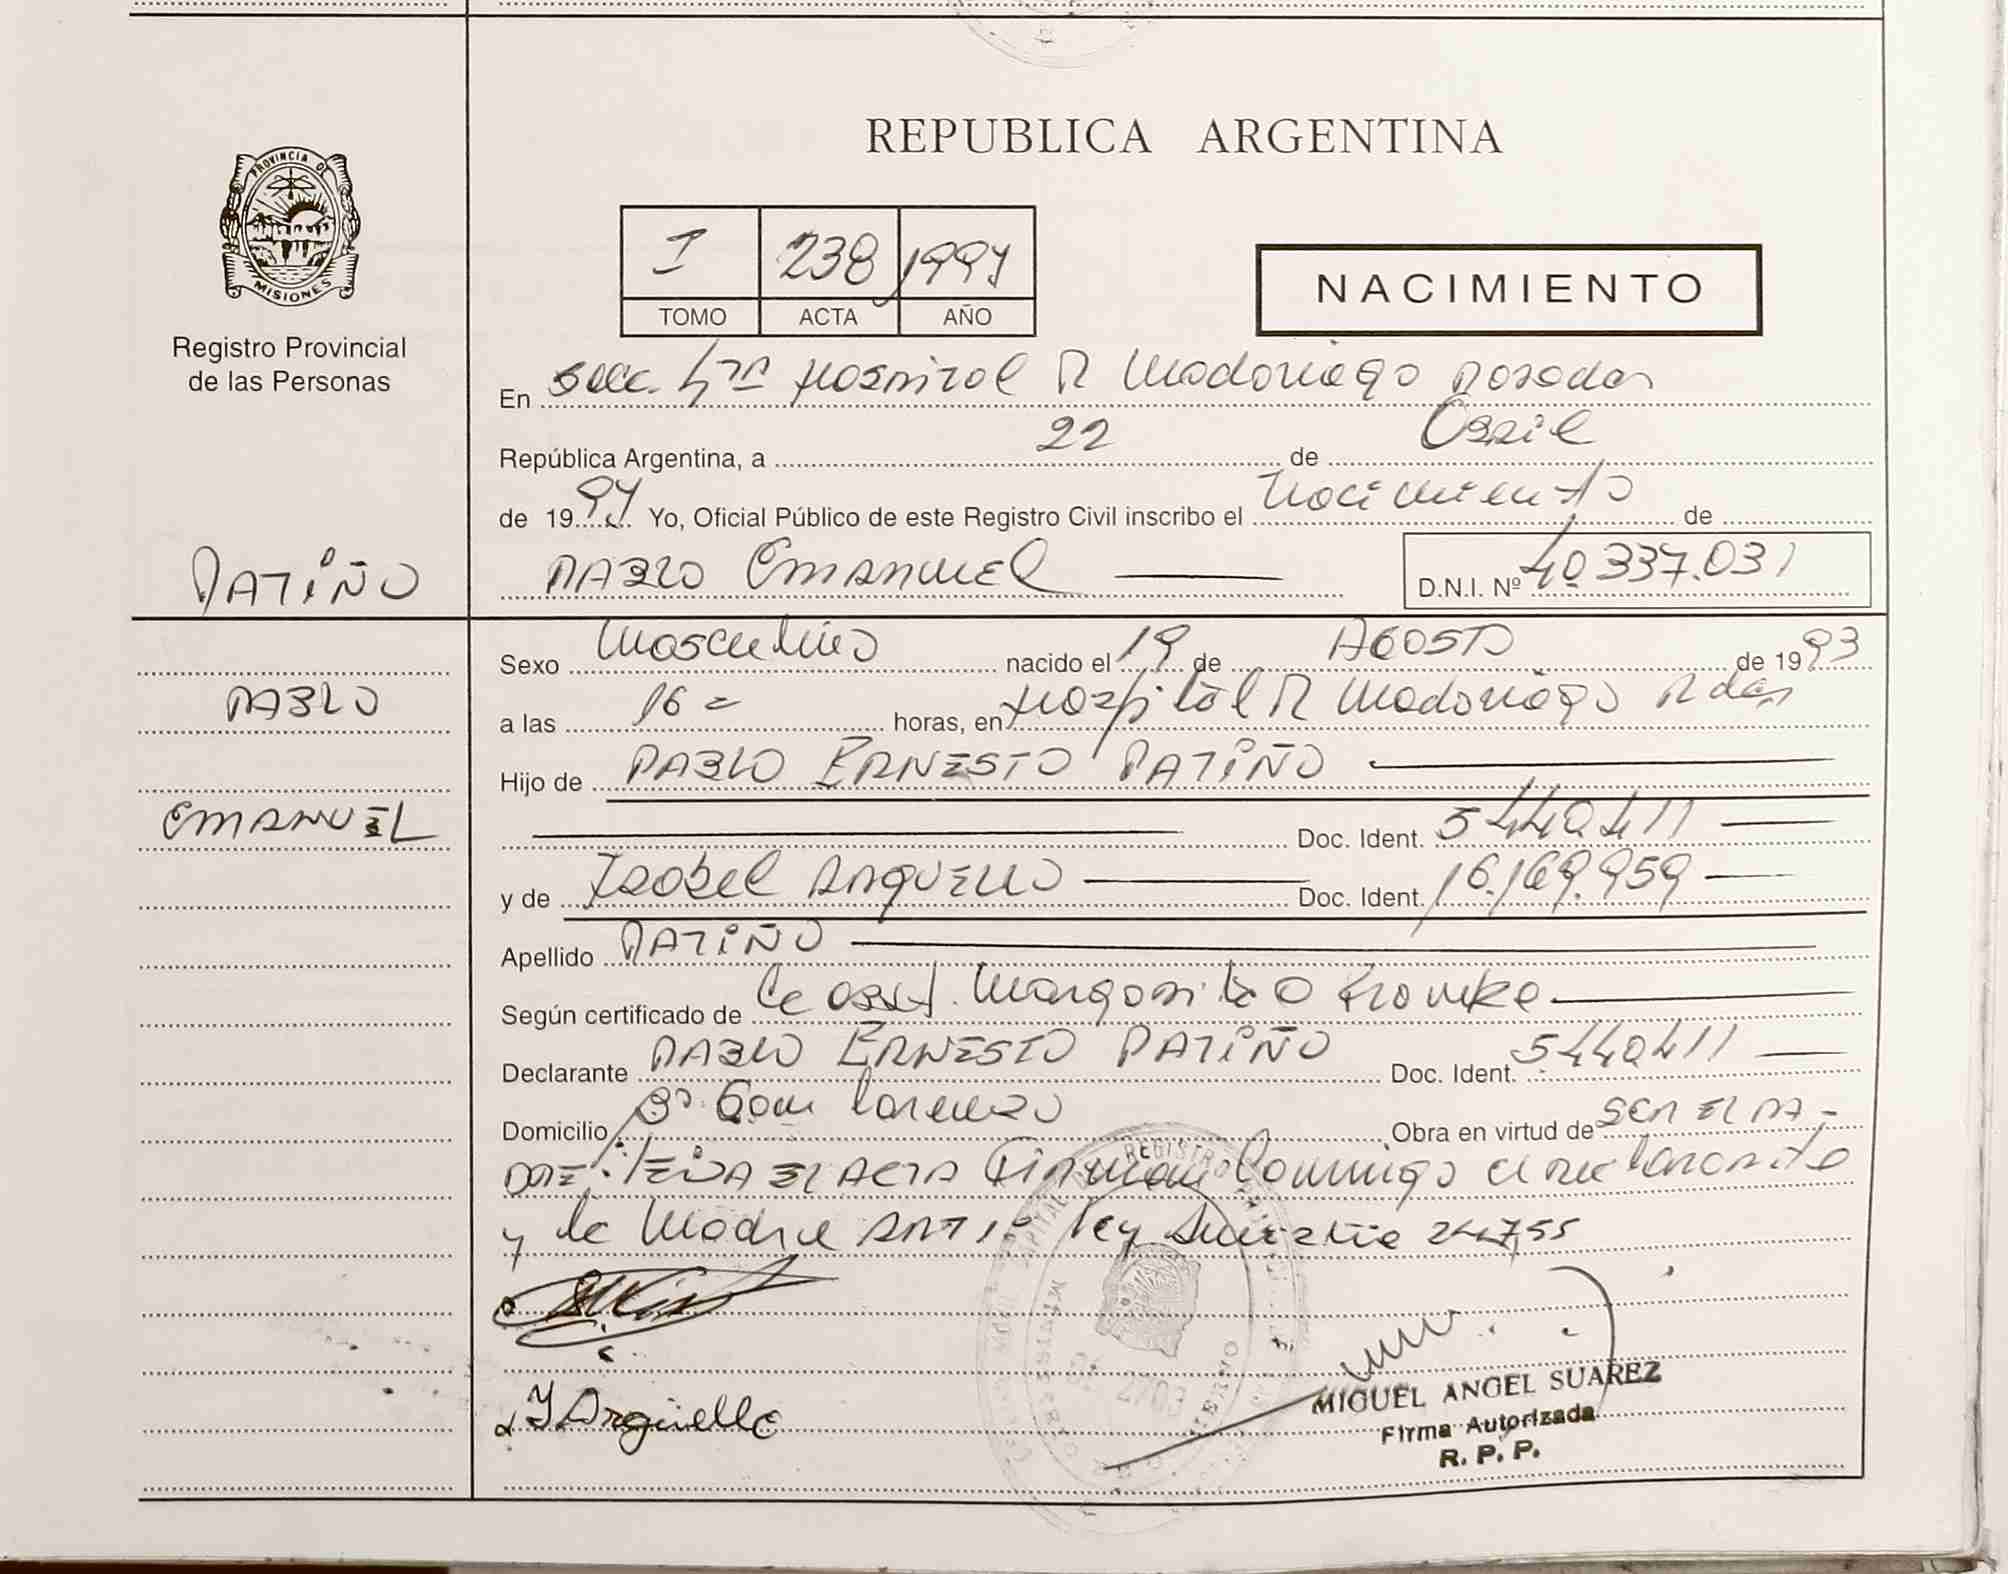 REPUBLICA ARGENTINA
PROVINCIA DE
MISIONES
Registro Provincial
de las Personas
I 238 1997
TOMO ACTA AÑO
NACIMIENTO
En Secc. Hospital R Madariaga Posadas
República Argentina, a 22 de Abril
de 1997 Yo, Oficial Público de este Registro Civil inscribo el Nacimiento de
PATIÑO
PABLO Emanuel D.N.I. Nº 40.337.031
Sexo Masculino nacido el 19 de AGOSTO de 1993
PABLO
a las 16 horas, en Hospital R Madariaga Pdas
Hijo de PABLO ERNESTO PATIÑO
EMANUEL
Doc. Ident. 5440411
y de Isabel ARGUELLO Doc. Ident. 16.169.959
Apellido PATIÑO
Según certificado de La Obst. Margarita
Declarante PABLO ERNESTO PATIÑO Doc. Ident. 5440411
Domicilio Bº San Lorenzo Obra en virtud de SER EL PA-
DRE. Leida EL ACTA Firman Conmigo el declarante
y la Madre ART 1º Ley 24755
Y Arguello
MIGUEL ANGEL SUAREZ
Firma Autorizada
R. P. P.